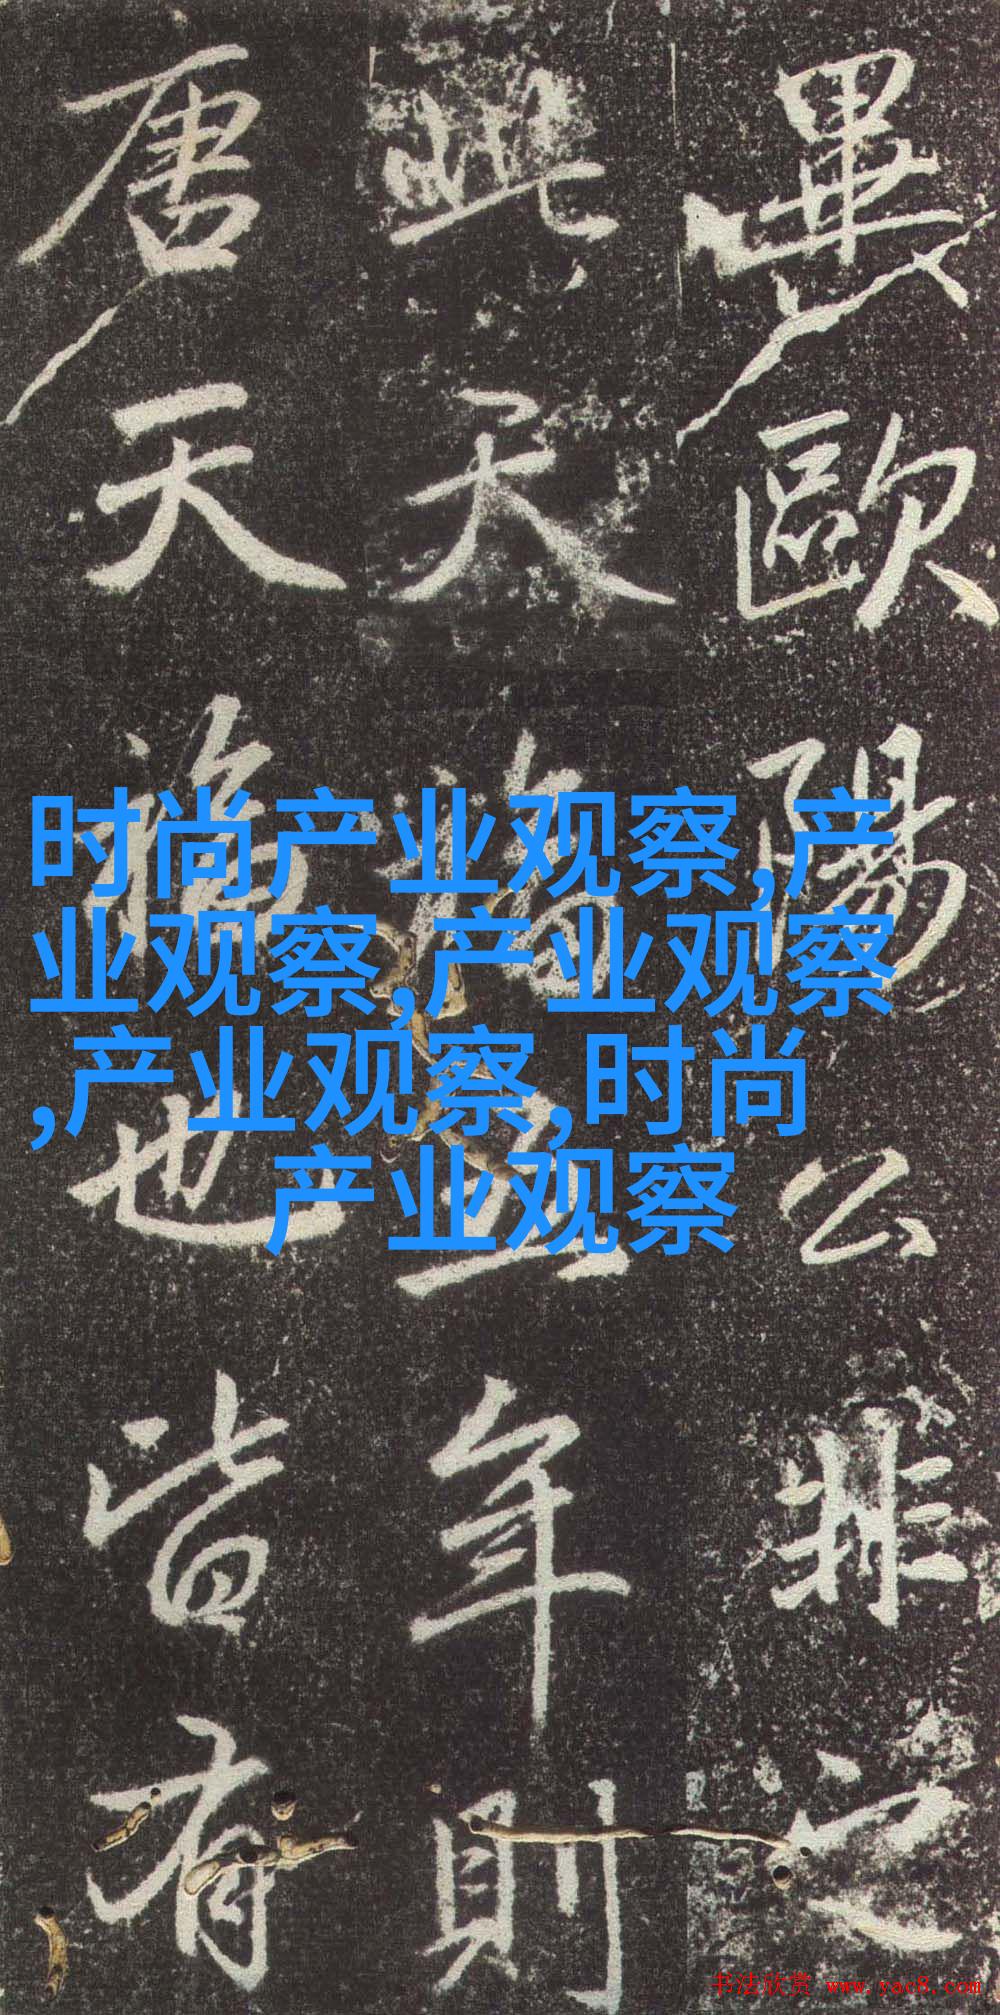 时尚产业观察,产
业观察,产业观察
,产业观察,时尚
产业观察
歐陽公非之
此天五年則
唐天也皆有
书法欣赏 www.yac8.com